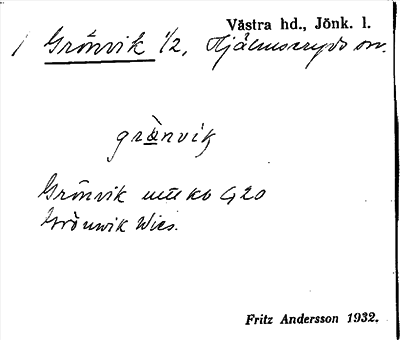 Västra hd., Jönk. l.
Grönvik 1/2, Hjälmseryds sn.
grö̀nvik
Grönvik 420
Grönwik Wies.
Fritz Andersson 1932.